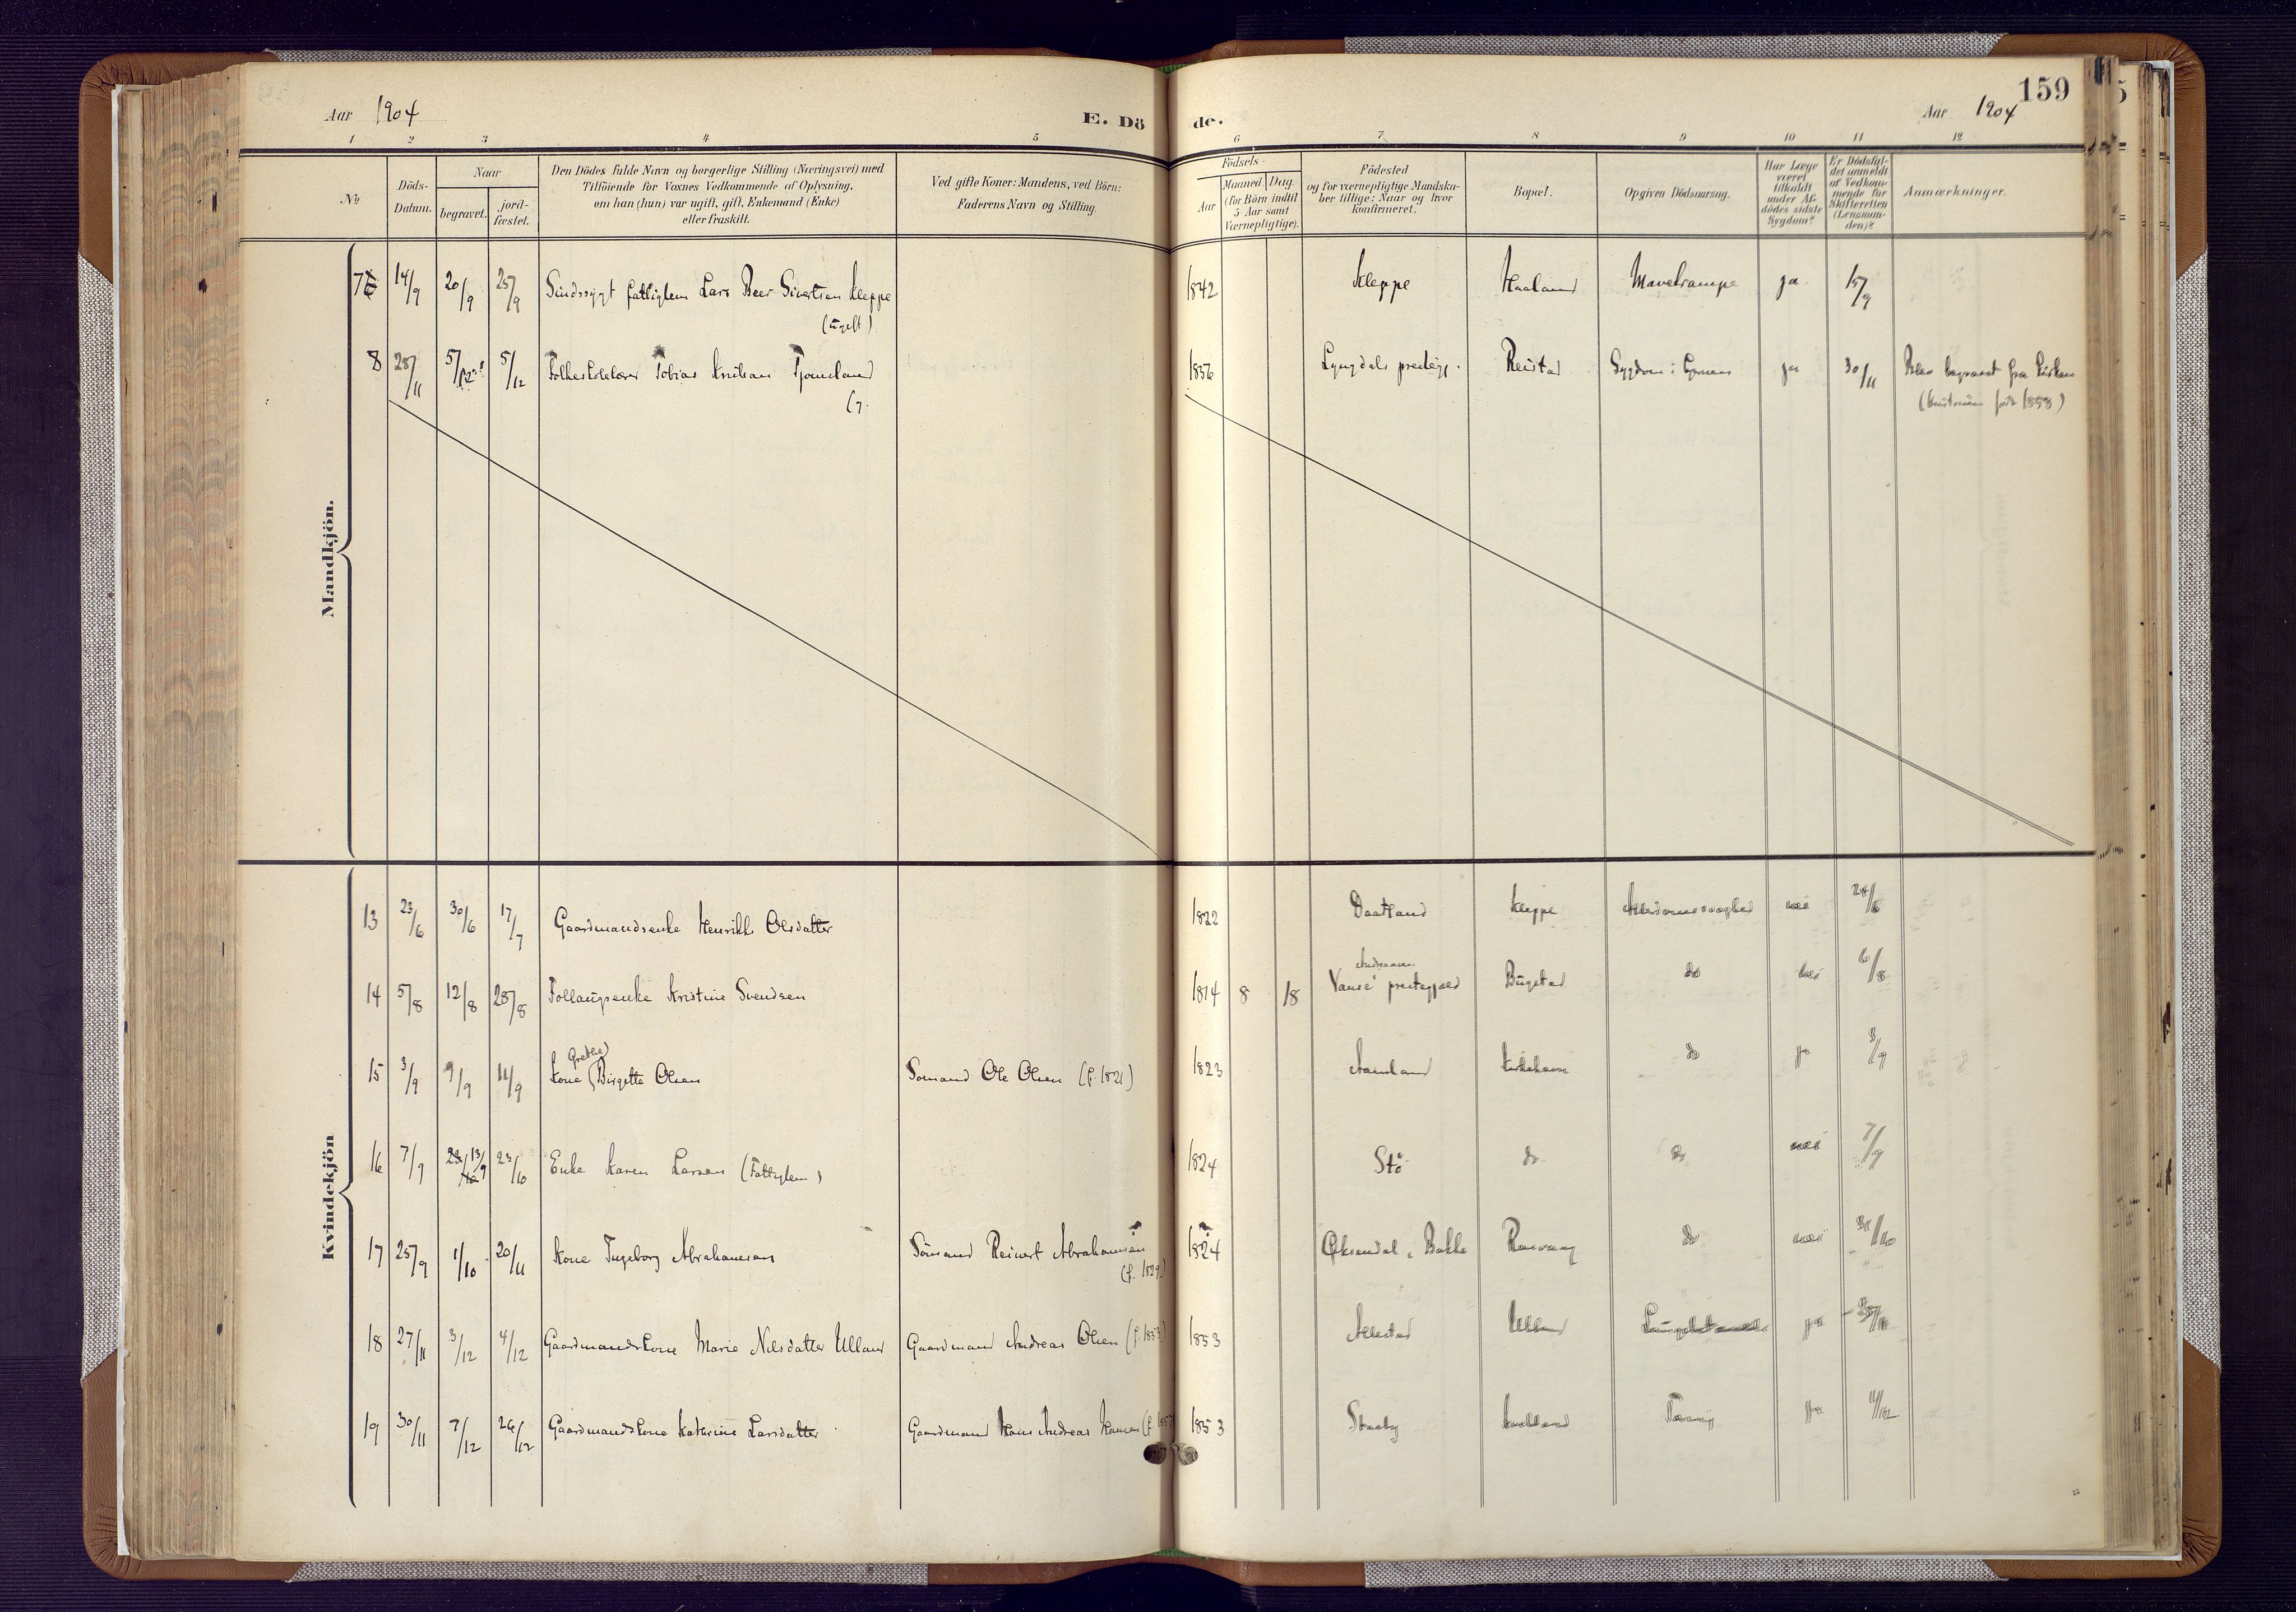 Aar 1904
E. Dö de.
Aar 1904
159
1 2 3 4 5 6 7 8 9 10 11 12
No
Döds-
Datum.
Naar
begravet.
jord-
fæstet.
Den Dödes fulde Navn og borgerlige Stilling (Næringsvei) med
Tilföiende for Voxnes Vedkommende af Oplysning,
om han (hun) var ugift, gift, Enkemand (Enke)
eller fraskilt.
Ved gifte Koner: Mandens, ved Börn:
Faderens Navn og Stilling.
Födsels-
Aar
Maaned. Dag.
(for Börn indtil
5 Aar samt
Værnepligtige).
Födested
og for værnepligtige Mandska-
ber tillige: Naar og hvor
konfirmeret.
Bopæl.
Opgiven Dödsaarsag.
Har Læge
været
tilkaldt
under Af-
dödes sidste
Sygdom?
Er Dödsfal-
det anmeldt
af Vedkom-
mende for
Skifteretten
(Lensman-
den)?
Anmærkninger.
Mandkjön.
7 14/9 20/9 25/9 Sindssygt fattiglem Lars Beer Sivertsen Kleppe 1842 Kleppe Haaland Mavekrampe ja 15/9
(ugift)
8 28/11 5/12 5/12 Folkeskolelærer Tobias Knudsen Tjomsland 1856 Lyngdals prestegj. Reistad Sygdom i Hjernen ja 30/11 Blev begravet fra Kirken
(g. (Kustruen født 1858)
Kvindekjön
13 23/6 30/6 17/7 Gaardmandsenke Henrikke Olsdatter 1822 Daatland Kleppe Alderdomssvaghed nei 24/6
14 5/8 12/8 28/8 Follaugsenke Kristine Svendsen 1814 8 18 Vanse prestegjæld Bugstad do nei 6/8
Grethe
15 3/9 9/9 11/9 Kone (Birgitte Olsen Sømand Ole Olsen (f. 1821) 1823 Aamland Kirkehavn do ja 3/9
16 7/9 13/9 23/10 Enke Karen Larsen (Fattiglem) 1824 Stö do do nei 7/9
17 25/9 1/10 20/11 Kone Ingeborg Abrahamsen Sömand Reinert Abrahamsen 1824 Øksendal i Bakke Rasvaag do nei 31/10
(f. 1829)
18 27/11 3/12 4/12 Gaardmandskone Marie Nilsdatter Ulland Gaardmand Andreas Olsen (f. 1853) 1853 Allestad Ulland ja
19 30/11 7/12 26/12 Gaardmandskone Kathrine Larsdatter Gaardmand Hans Andreas Hansen (f. 1857) 1853 Stueby Tæring ja 11/12